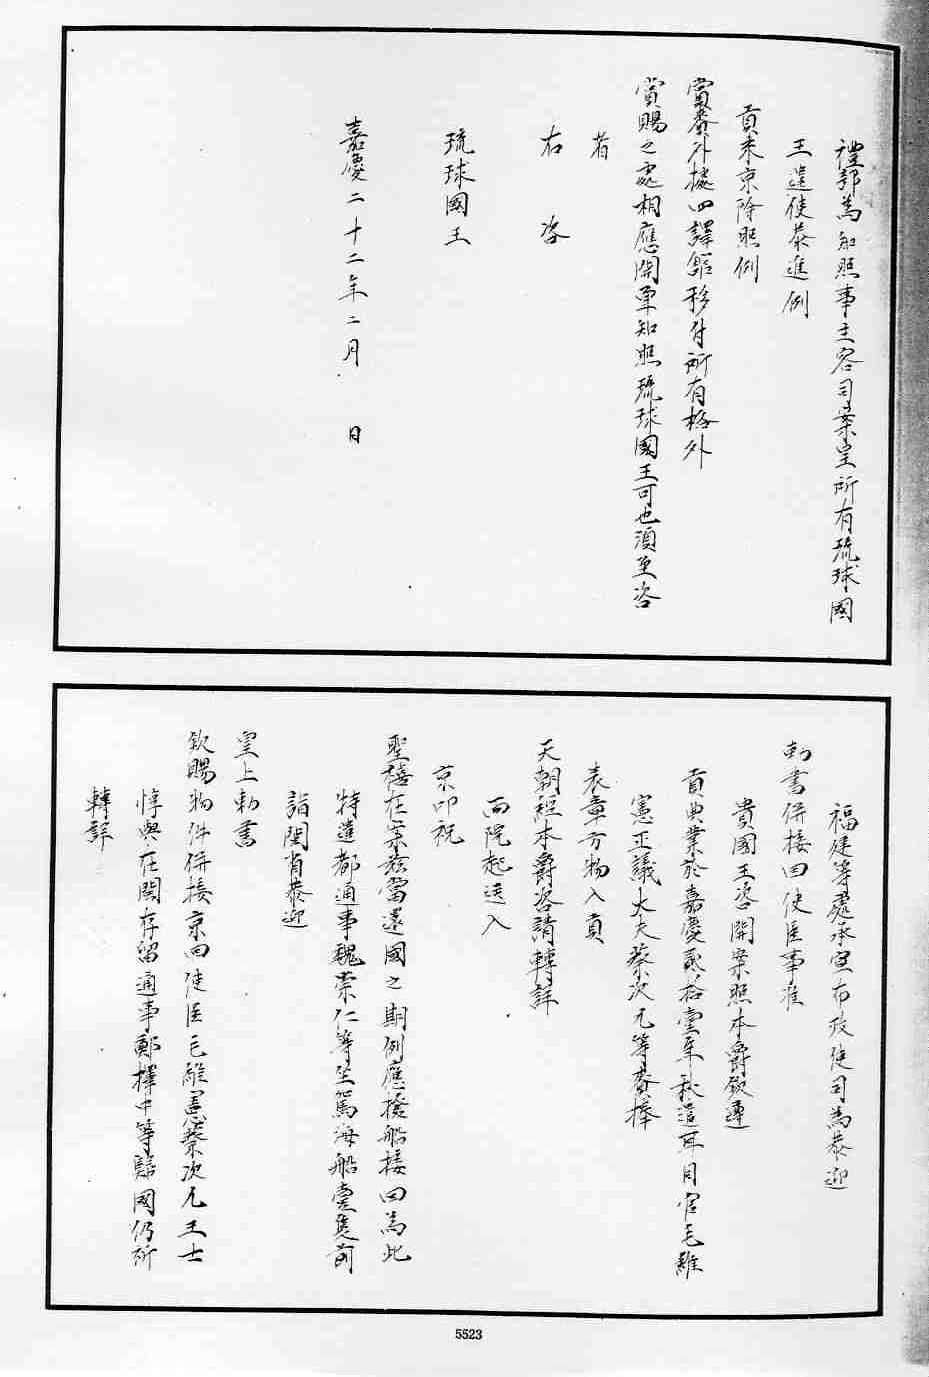 禮部為知照事主客司案呈所有琉球國
王遣使恭進例
貢來京除照例
賞賚外據四譯館移付所有格外
賞賜之處相應開單知照琉球國王可也須至咨
者
右咨
琉球國王
嘉慶二十二年二月　日
福建等處承宣布政使司為恭迎
勅書併接回使臣事准
貴國王咨開案照本爵欽遵
貢典業於嘉慶貳拾壹年秋遣耳目官毛維
憲正議大夫蔡次九等賫捧
表章方物入貢
天朝經本爵咨請轉詳
兩院起送入
京叩祝
聖禧在案茲當還國之期例應撥船接回為此
特遣都通事魏崇仁等坐駕海船壹隻前
詣閩省恭迎
皇上勅書
欽賜物件併接京回使臣毛維憲蔡次九王士
惇與在閩存留通事鄭擇中等歸國仍祈
轉詳
5523